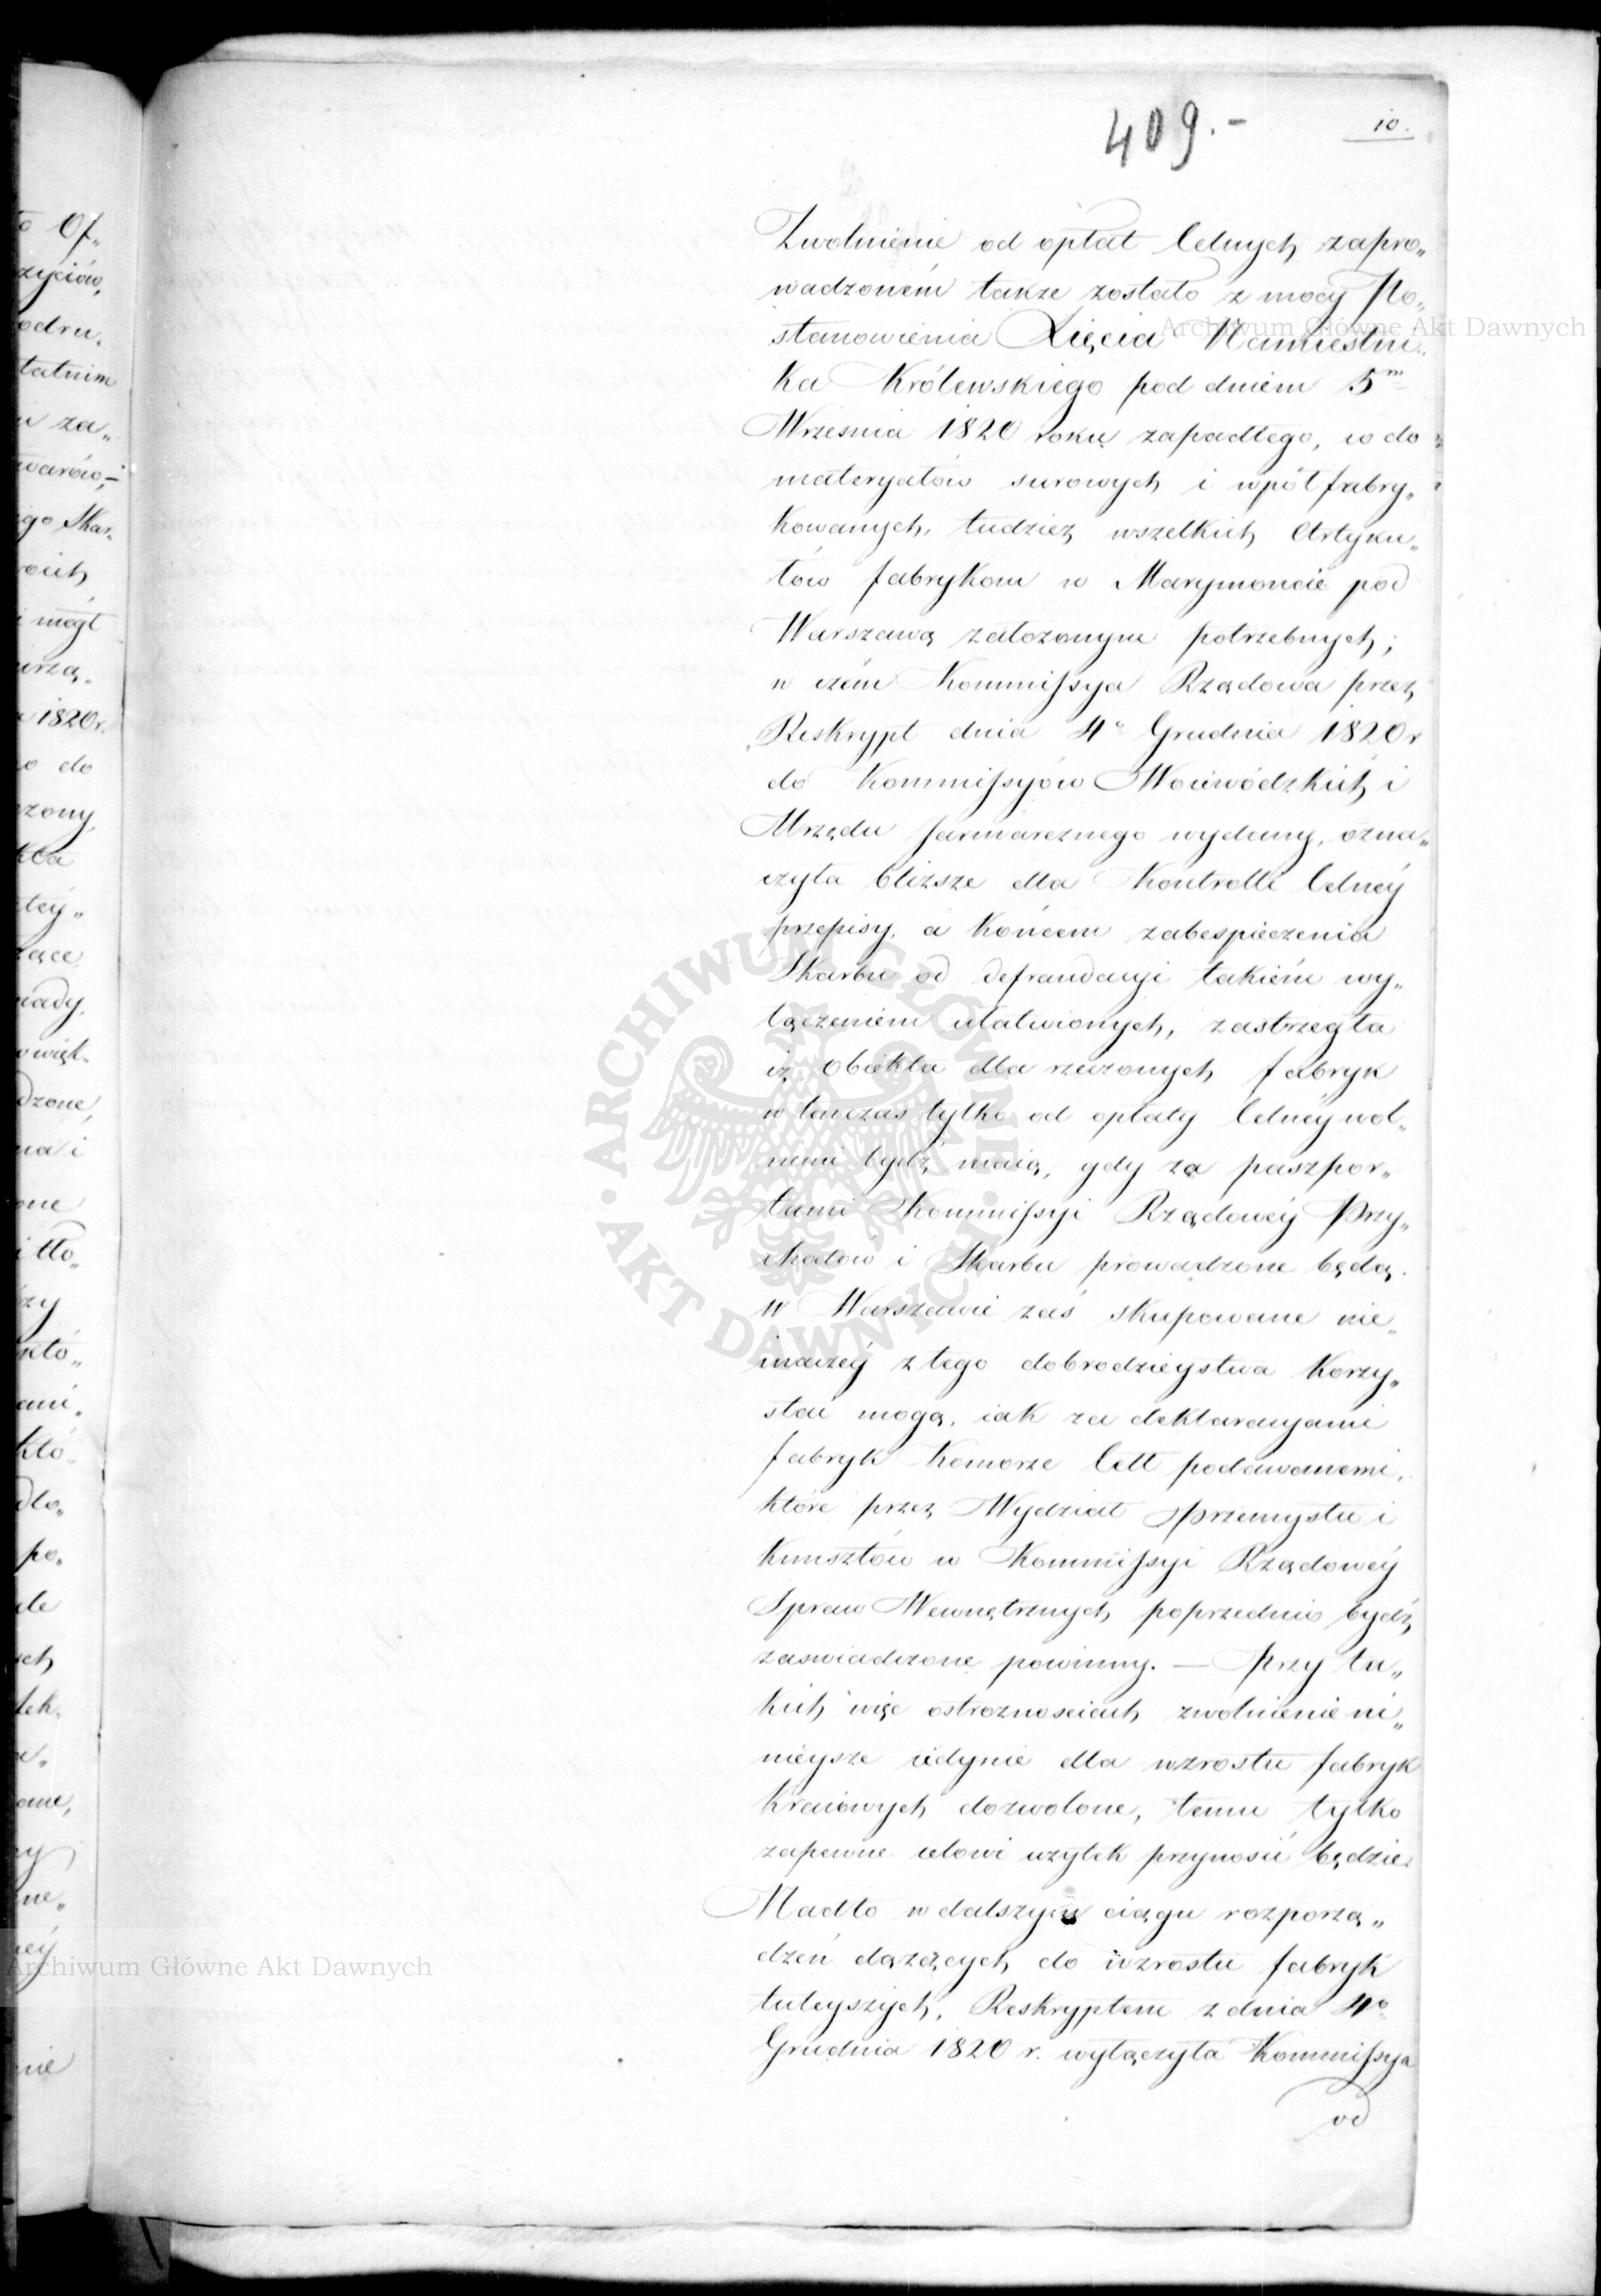 409.-
10.
Zwolnienie od opłat Celnych zapro„
wadzoném także zostało z mocy Po„
stanowienia Xięcia Namiestni„
ka Królewskiego pod dniem 5m
Września 1820 roku zapadłego, w do
materyałów surowych i wpół fabry„
kowanych, tudzież wszelkich Artyku„
łów fabrykom w Marymoncie pod
Warszawą założonym potrzebnych;
w czém Kommissya Rządowa przez
Reskrypt dnia 4o Grudnia 1820 r
do Kommissyów Woiewódzkich i
Urzędu Jarmarcznego wydany, ozna„
czyła bliższe dla Kontrolli Celnéy
przepisy, a końcem zabespieczenia
Skarbu od defraudacyi takiém wy„
łączeniem ułatwionych, zastrzegła
iż obiekta dla rzeczonych fabryk
w tenczas tylko od opłaty Celnéy wol„
nemi bydź maią, gdy za paszpor„
tami Kommissyi Rządowéy Przy„
chodów i Skarbu prowadzone będą.
W Warszawie zaś skupowane nie„
inaczéy z tego dobrodzieystwa korzy„
stać mogą, iak za deklaracyami
fabryk Komorze Cell podawanemi,
które przez Wydział Przemysłu i
Kunsztów w Kommissyi Rządowéy
Spraw Wewnętrznych poprzednio bydź
zaświadczone powinny. — Przy ta„
kich więc ostrożnościach zwolnienie ni„
nieysze iedynie dla wzrostu fabryk
kraiowych dozwolone, temu tylko
zapewne celowi użytek przynosić będzie.
Nadto w dalszym ciągu rozporzą„
dzeń dążących do wzrostu fabryk
tuteyszych, Reskryptem z dnia 4o
Grudnia 1820 r. wyłączyła Kommissya
od
to Of„
życiów,
odru„
tatnim
za„
warów,–
go Skar„
mógł
1820 r.
do
tey„
iady,
dzone,
na i
tło„
któ„
ami„
któ„
po„
ale
ne„
nie
Archiwum Główne Akt Dawnych
· ARCHIWUM GŁÓWNE · AKT DAWNYCH
Archiwum Główne Akt Dawnych